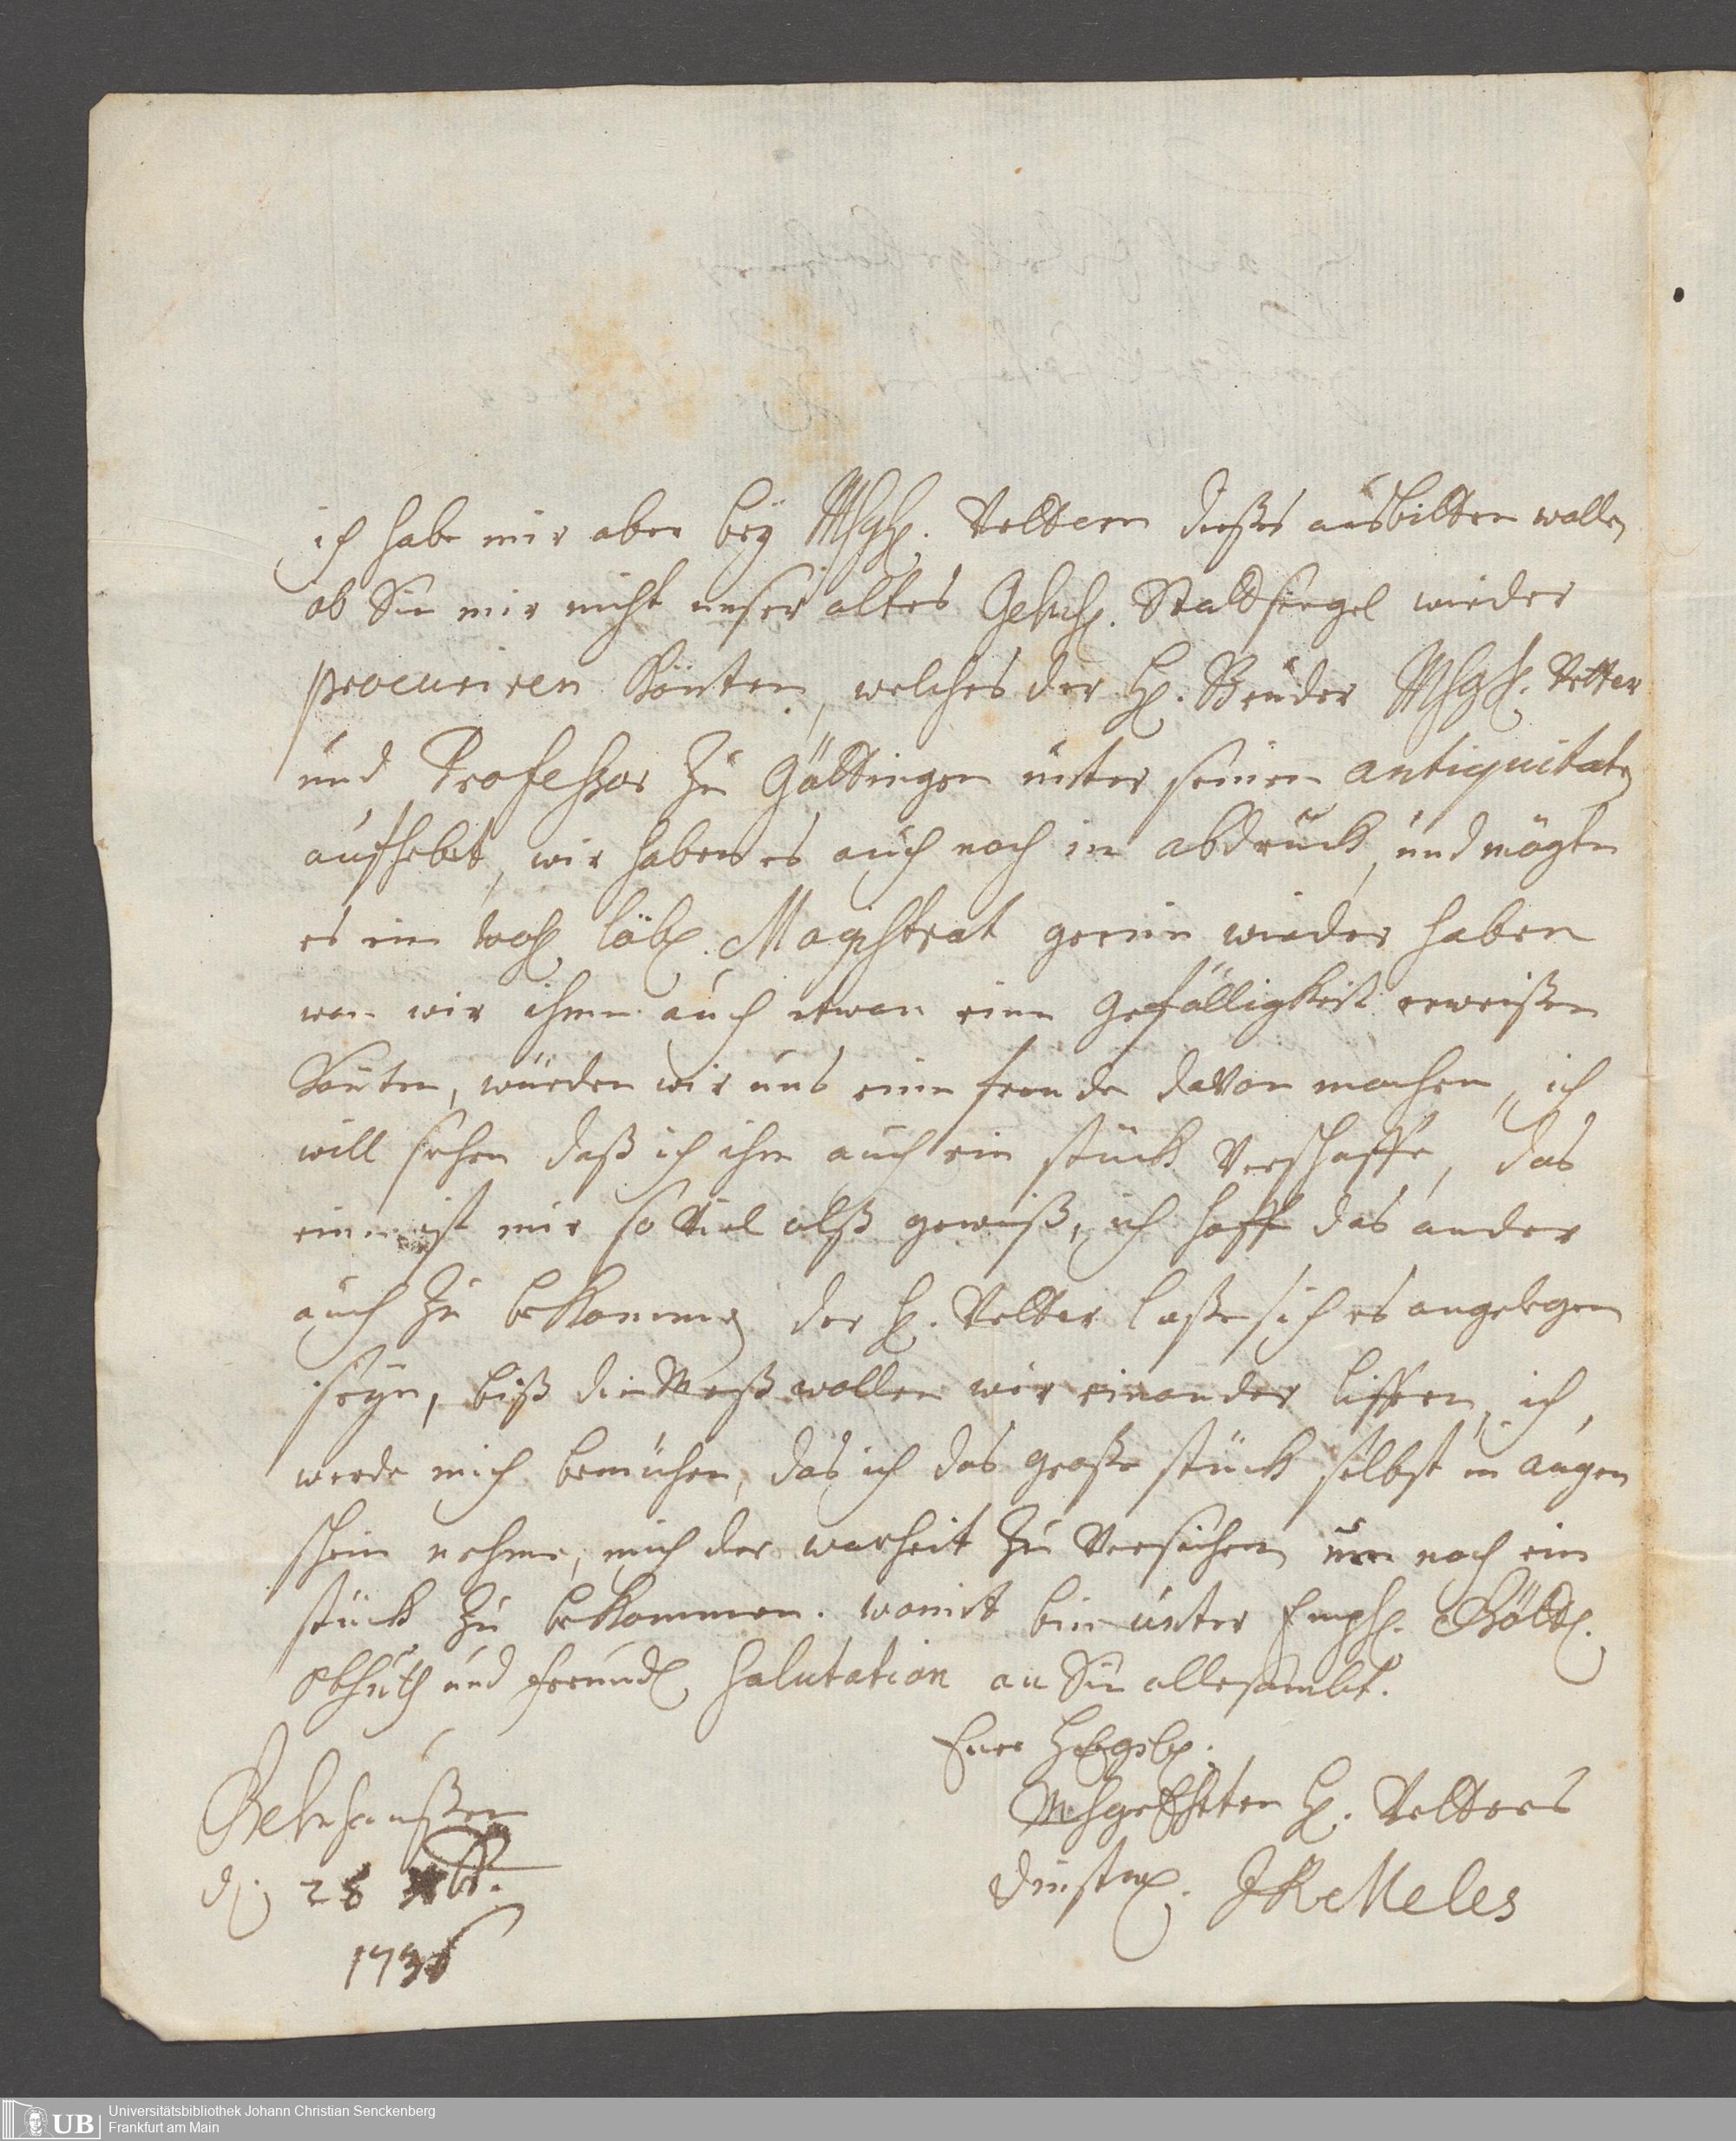 ich habe mir aber beÿ MhgH. Vettern dießes ausbitten wollen
ob Sie mir nicht unser altes Gelnh. Stadtsiegel wieder
procuriren könten, welches der H. Bruder MhgH. Vetter
und Professor zu Göttingen unter seinen antiquitaten
aufhebt, wir haben es auch noch in abdruck, und mögte
es ein wohl löbl. Magistrat gerne wieder haben
wan wir ihme auch etwan eine Gefälligkeit erweißen
könten, würden wir uns eine freude davon machen, ich
will sehen daß ich ihm auch ein stück verschaffe, das
eine ist mir so viel alß gewiß, ich hoffe das ander
auch zu bekommen der H. Vetter laße sich es angelegen
seyn, biß die Meß wollen wir einander liffern, ich
werde mich bemühen, das ich das große stück selbst in augen
schein nehme, mich der warheit zu versichern um noch ein
stück zu bekommen. womit bin unter Empfh. Göttl.
Obhuth und freundl. salutation an Sie allesambt.
Euer
MhgEhrten H. Vetters
Dienstw. JRCMeles
Gelnhaußen
d. 28 br.
1736
UB Universitätsbibliothek Johann Christian Senckenberg
Frankfurt am Main